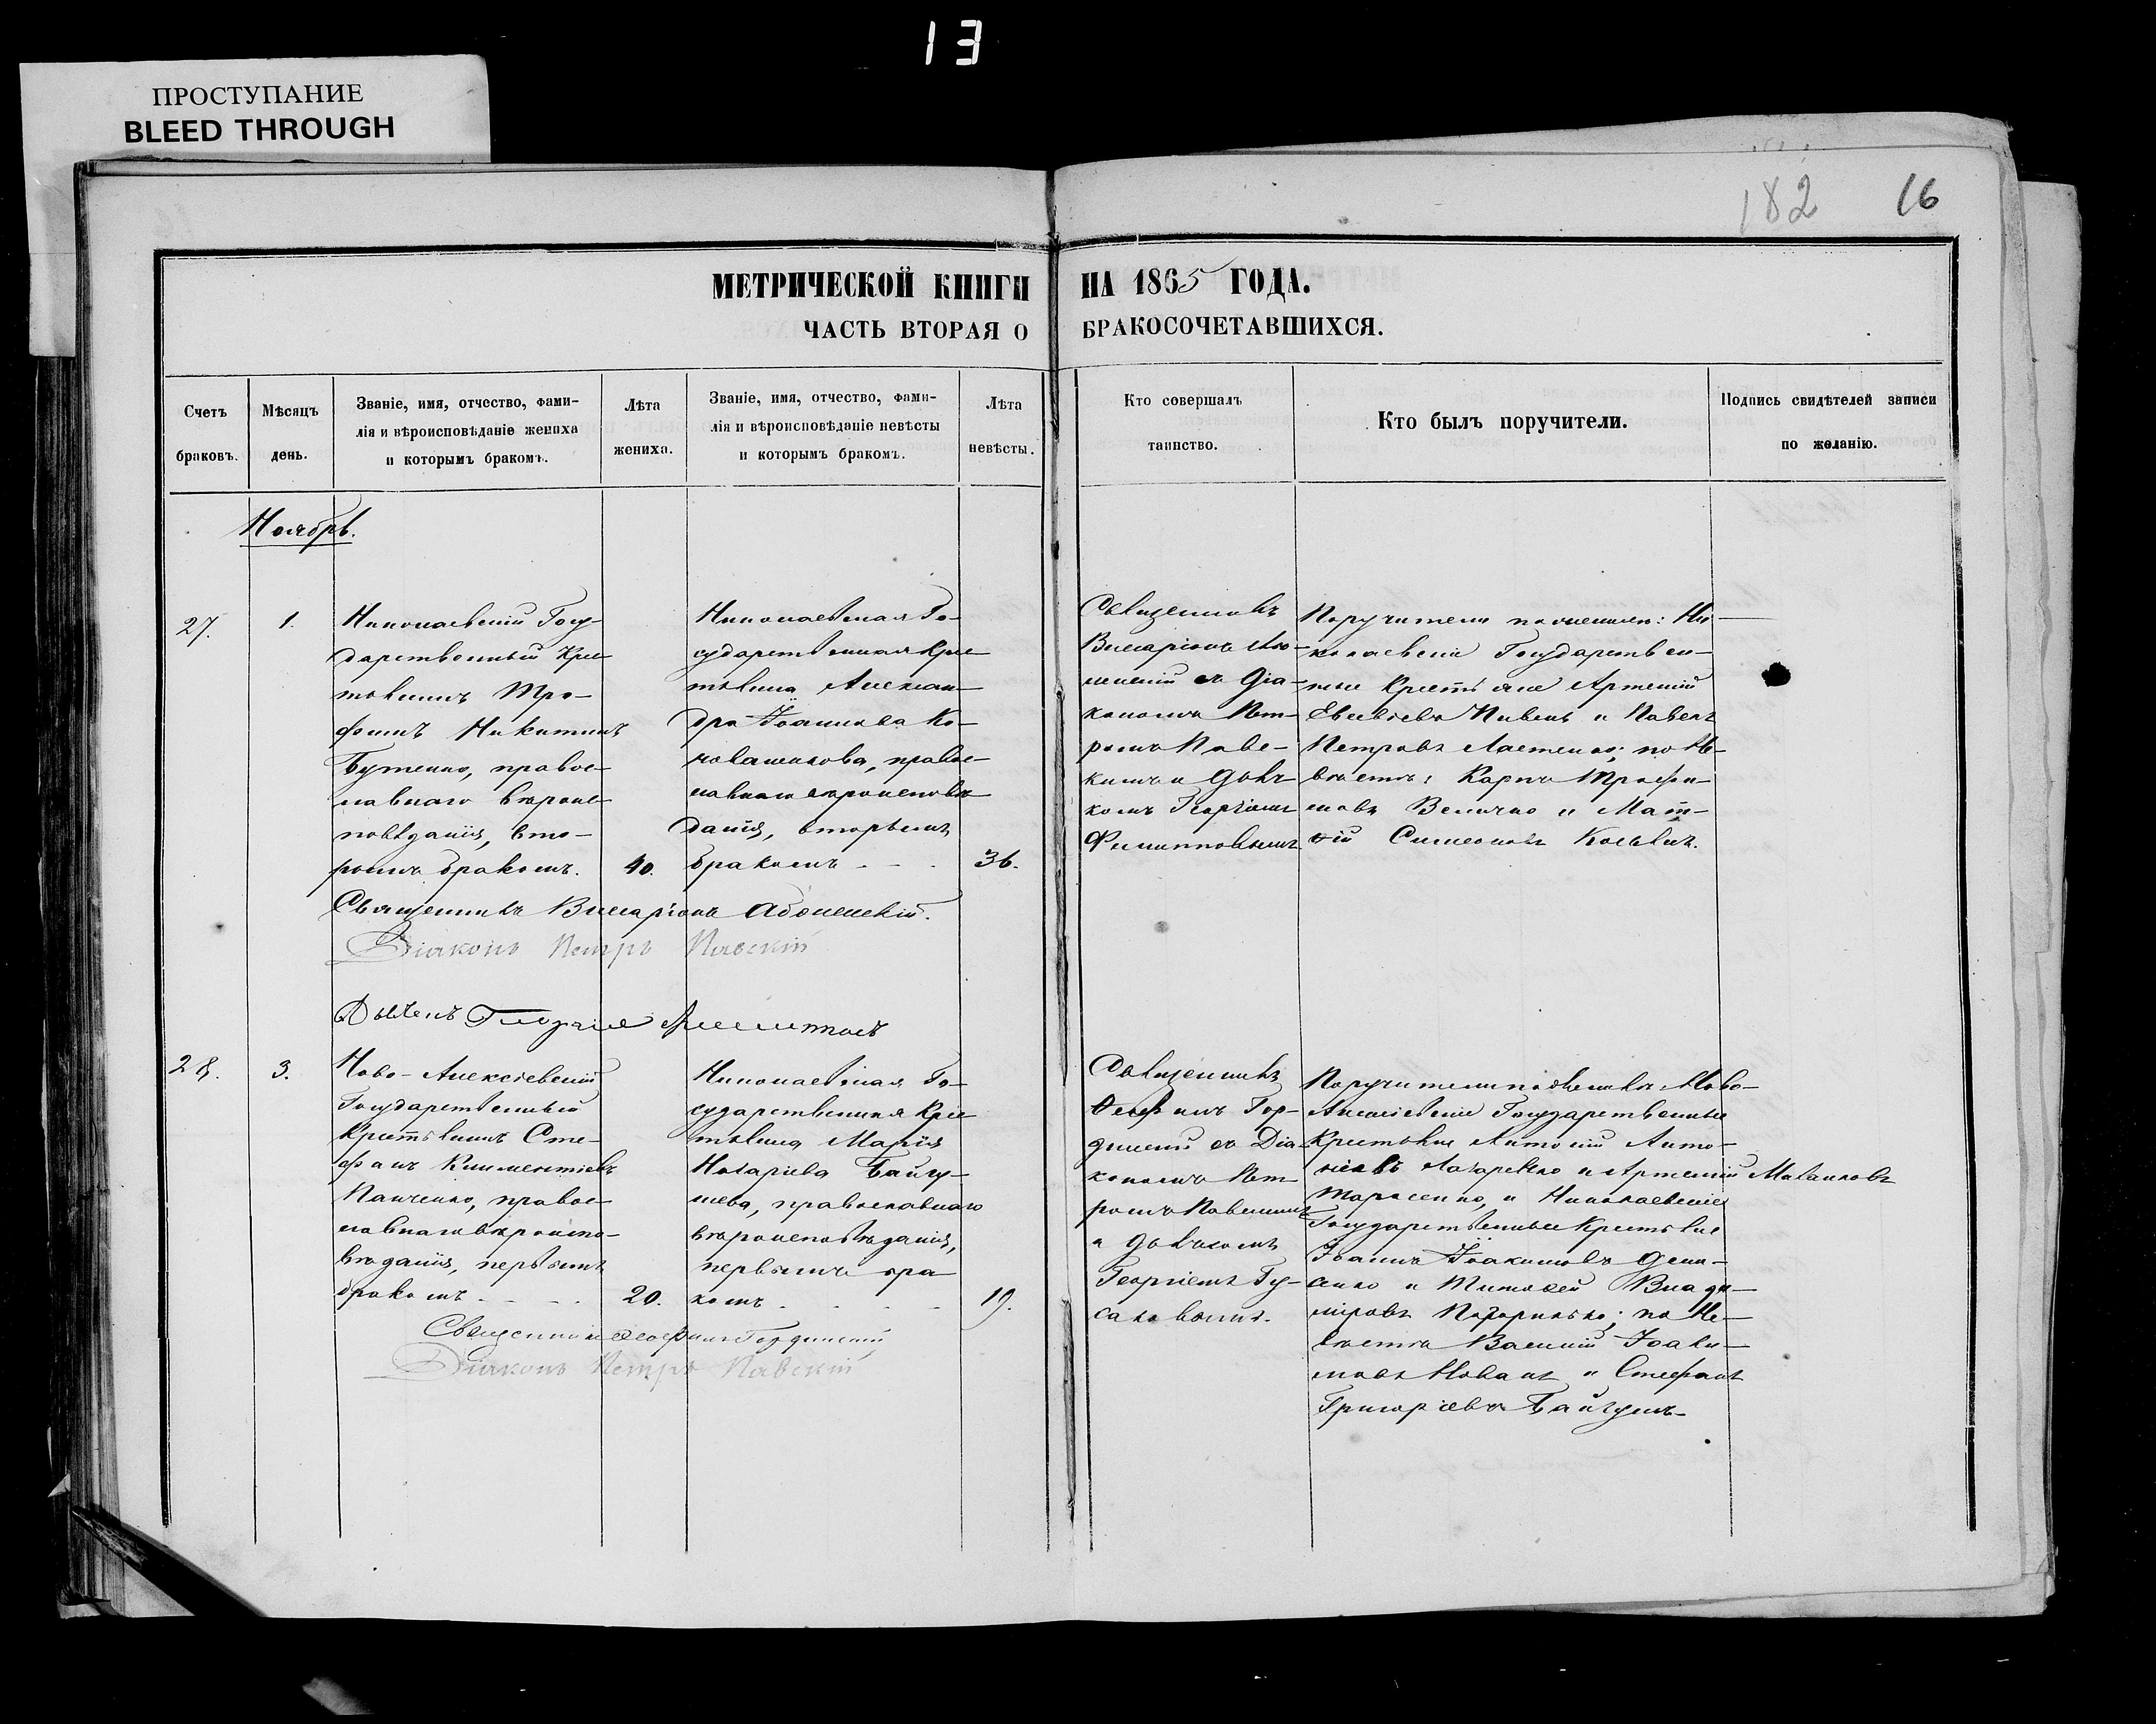 13
ПРОСТУПАНИЕ
BLEED THROUGH
182 16
МЕТРИЧЕСКОЙ КНИГИ НА 1865 ГОДА.
ЧАСТЬ ВТОРАЯ О БРАКОСОЧЕТАВШИХСЯ.
Счетъ браковъ.
Мѣсяцъ день.
Званіе, имя, отчество, фами-
лія и вѣроисповѣданіе жениха
и которымъ бракомъ.
Лѣта жениха.
Званіе, имя, отчество, фами-
лія и вѣроисповѣданіе невѣсты
и которымъ бракомъ.
Лѣта невѣсты.
Кто совершалъ
таинство.
Кто былъ поручители.
Подпись свидѣтелей записи
по желанію.
Ноябрь.
27.
1.
Николаевскій Госу-
дарственный Кре-
стьянинъ Тро-
фимъ Никитинъ
Бутенко, правос-
лавнаго вѣроис-
повѣданія, вто-
рымъ бракомъ.
40.
Николаевская Го-
сударственная Кре-
стьянка Алексан-
дра Іоаннова Ко-
правос-
лавнаго вѣроисповѣ-
данія, вторымъ
бракомъ - - -
36.
Священникъ
Виссаріонъ
съ Діа-
кономъ Пет-
ромъ Павс-
кимъ и Дьяч-
комъ Георгіемъ
Филипповымъ
Поручители по женихѣ: Ни-
колаевскіе Государствен-
ные Крестьяне Артемій
Евсевіевъ Пивень и Павелъ
Петровъ Ластенко; по Не-
вѣстѣ: Карпъ Трофи-
мовъ Величко и Мат-
ѳій Симеоновъ
Священникъ Виссаріонъ
Діаконъ Петръ Павскій
Дьячекъ Георгій
28.
3.
Ново-Алексѣевскій
Государственный
Крестьянинъ Сте-
фанъ Климентіевъ
Панченко, правос-
лавнаго вѣроиспо-
вѣданія, первымъ
бракомъ - - - -
20.
Николаевская Го-
сударственная Крес-
тьянка Марія
Назарьева Байгу-
шева, православнаго
вѣроисповѣданія,
первымъ бра-
комъ - - - -
19.
Священникъ
Ѳеофилъ Гор-
динскій съ Діа-
кономъ Пет-
ромъ Павскимъ
и Дьячкомъ
Георгіемъ Гу-
саковымъ.
Поручители по женихѣ: Ново-
Алексѣевскіе Государственные
Крестьяне Антоній Анто-
ніевъ Лазаренко и Артемій
Тарасенко, и Николаевскіе
Государственные Крестьяне
Іоаннъ Іоакимовъ Дени-
сенко и Тимоѳей Влади-
міровъ; по Не-
вѣстѣ Василій Іоаки-
мовъ Новакъ и Стефанъ
Григоріевъ Байгушъ.
Священникъ Ѳеофилъ Гординскій
Діаконъ Петръ Павскій